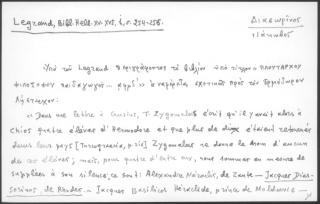 Legrand, Bibl. Hell. XV. XVI, t, σ. 254-256.
Δικαωρῖνος
Ἰάκωβος
Ὑπὸ τοῦ Legrand περιγράφοντος τὸ βιβλίον ὑπὸ τίτλον ΠΛΟΥΤΑΡΧΟΥ
πρὸς τὸν Ἑρμόδωρον
Λήσταρχον:
« Dans une lettre à Crusius, T. Zygomalas écrit qu'il y avait alors à
Chios quatre élèves d'Hermodore et que plus de dix étaient retournés
dans leur pays [Turcograecia, p. ] Zygomalas ne donne le nom d'aucun
de ces élèves; mais, pour quatre d'entre eux, nous sommes en mesure de
suppléer à son silence, ce sont: Alexandre Nérulis, de Zante — Jacques Dias-
sorinos de Rhodes — Jacques Basilicos Héraclide, prince de Moldavie —